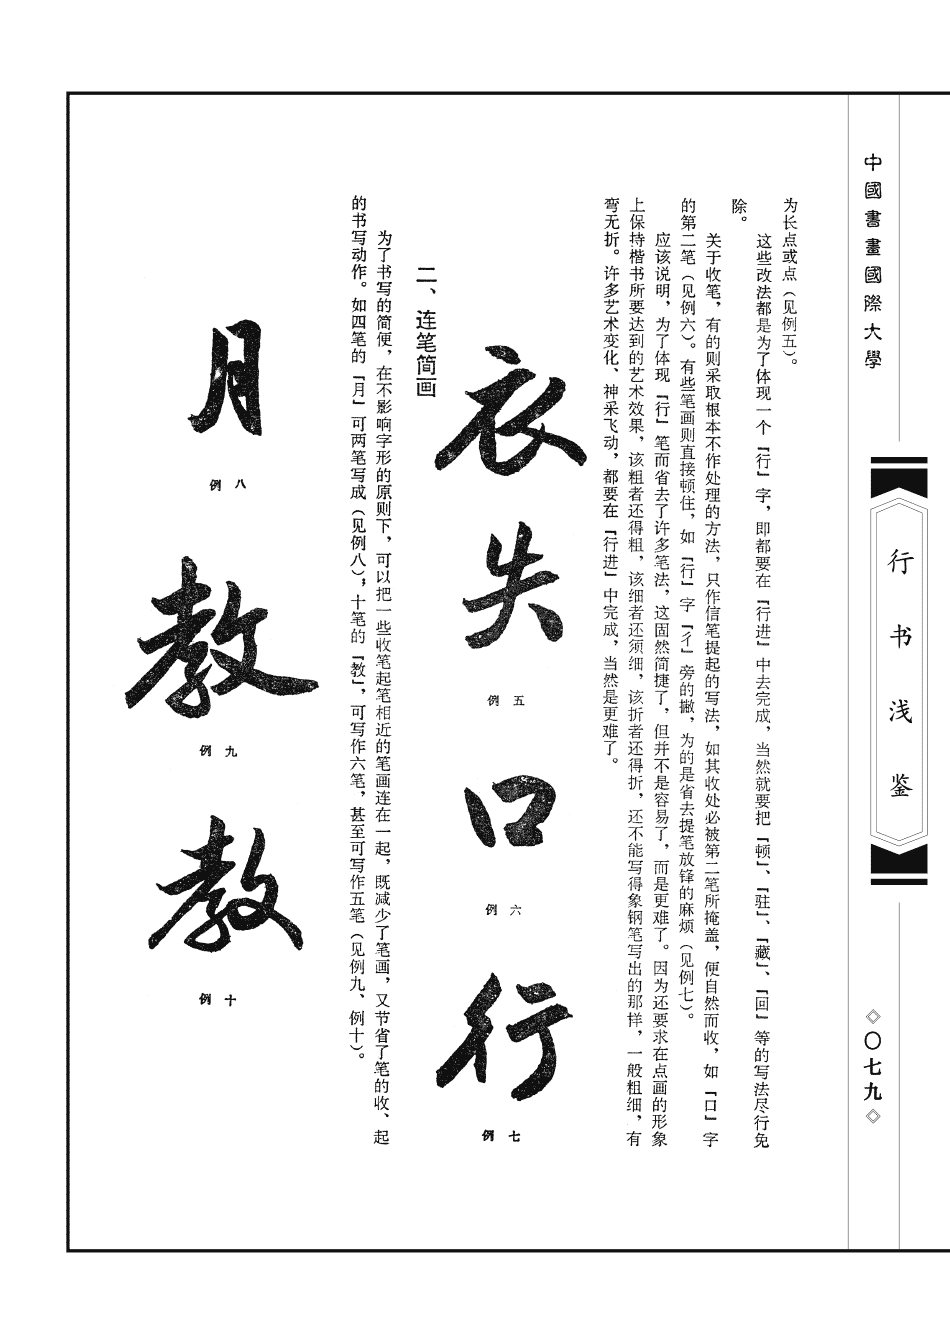 中國書畫國際大學
行书浅鉴
◇〇七九◇
为长点或点（见例五）。
这些改法都是为了体现一个『行』字，即都要在『行进』中去完成，当然就要把『顿』、『驻』、『藏』、『回』等的写法尽行免
除。
关于收笔，有的则采取根本不作处理的方法，只作信笔提起的写法，如其收处必被第二笔所掩盖，便自然而收，如『口』字
的第二笔（见例六）。有些笔画则直接顿住，如『行』字『彳』旁的撇，为的是省去提笔放锋的麻烦（见例七）。
应该说明，为了体现『行』笔而省去了许多笔法，这固然简捷了，但并不是容易了，而是更难了。因为还要求在点画的形象
上保持楷书所要达到的艺术效果，该粗者还得粗，该细者还须细，该折者还得折，还不能写得象钢笔写出的那样，一般粗细，有
弯无折。许多艺术变化、神采飞动，都要在『行进』中完成，当然是更难了。
衣
失
例五
口
例六
行
例七
二、连笔简画
为了书写的简便，在不影响字形的原则下，可以把一些收笔起笔相近的笔画连在一起，既减少了笔画，又节省了笔的收、起
的书写动作。如四笔的『月』可两笔写成（见例八），十笔的『教』，可写作六笔，甚至可写作五笔（见例九、例十）。
月
例八
教
例九
教
例十